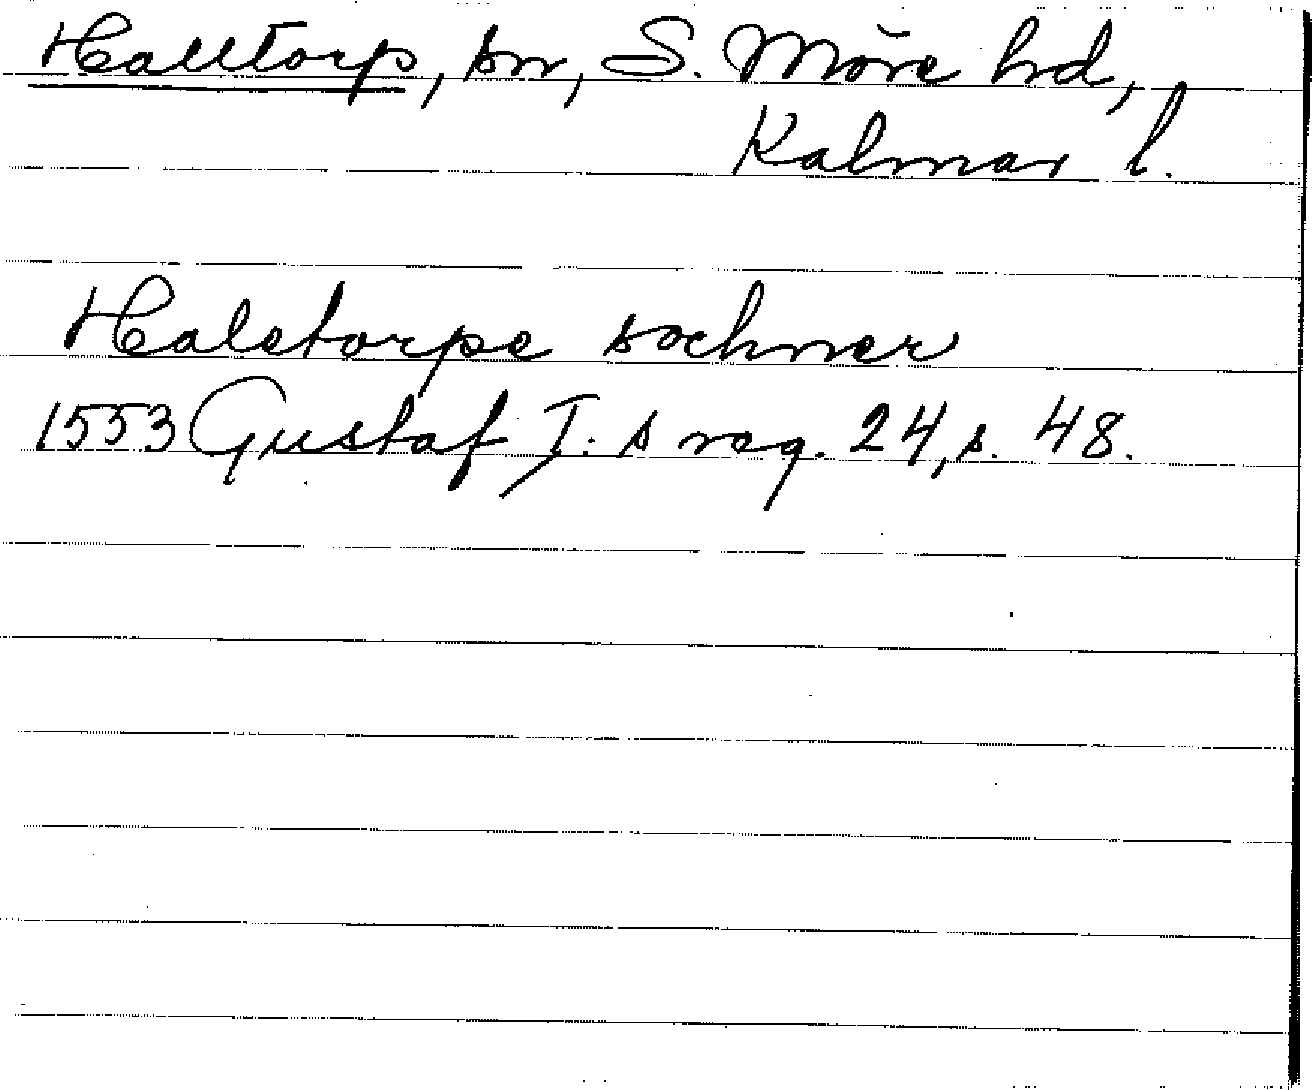 Halltorp, sn, S. Möre hd,
Kalmar l.
Halstorps sochner
1553 Gustaf I:s reg. 24, s. 48.